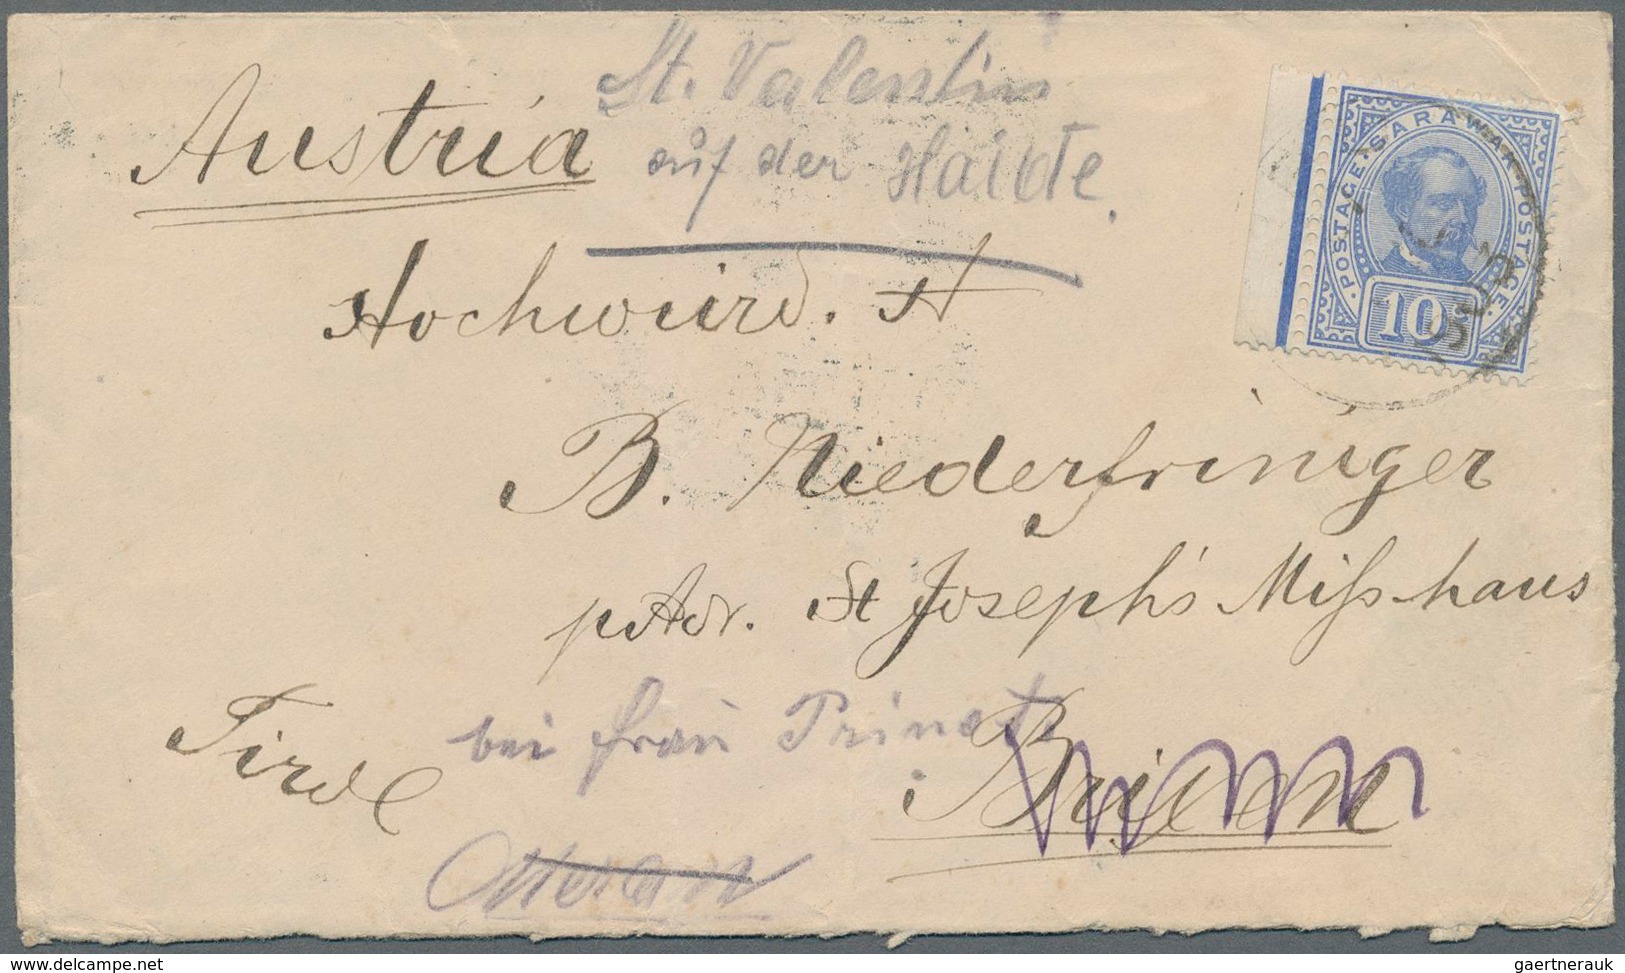 St. Valentin
auf der Haide.
Austria
SARAWAK
POSTAGE
POSTAGE
10c
Hochwürd. H
B. Niederfriniger
p. Adr. St Joseph's Misshaus
Tirol
bei Frau
Brixen
Meran
delcampe.net
gaertnerauk